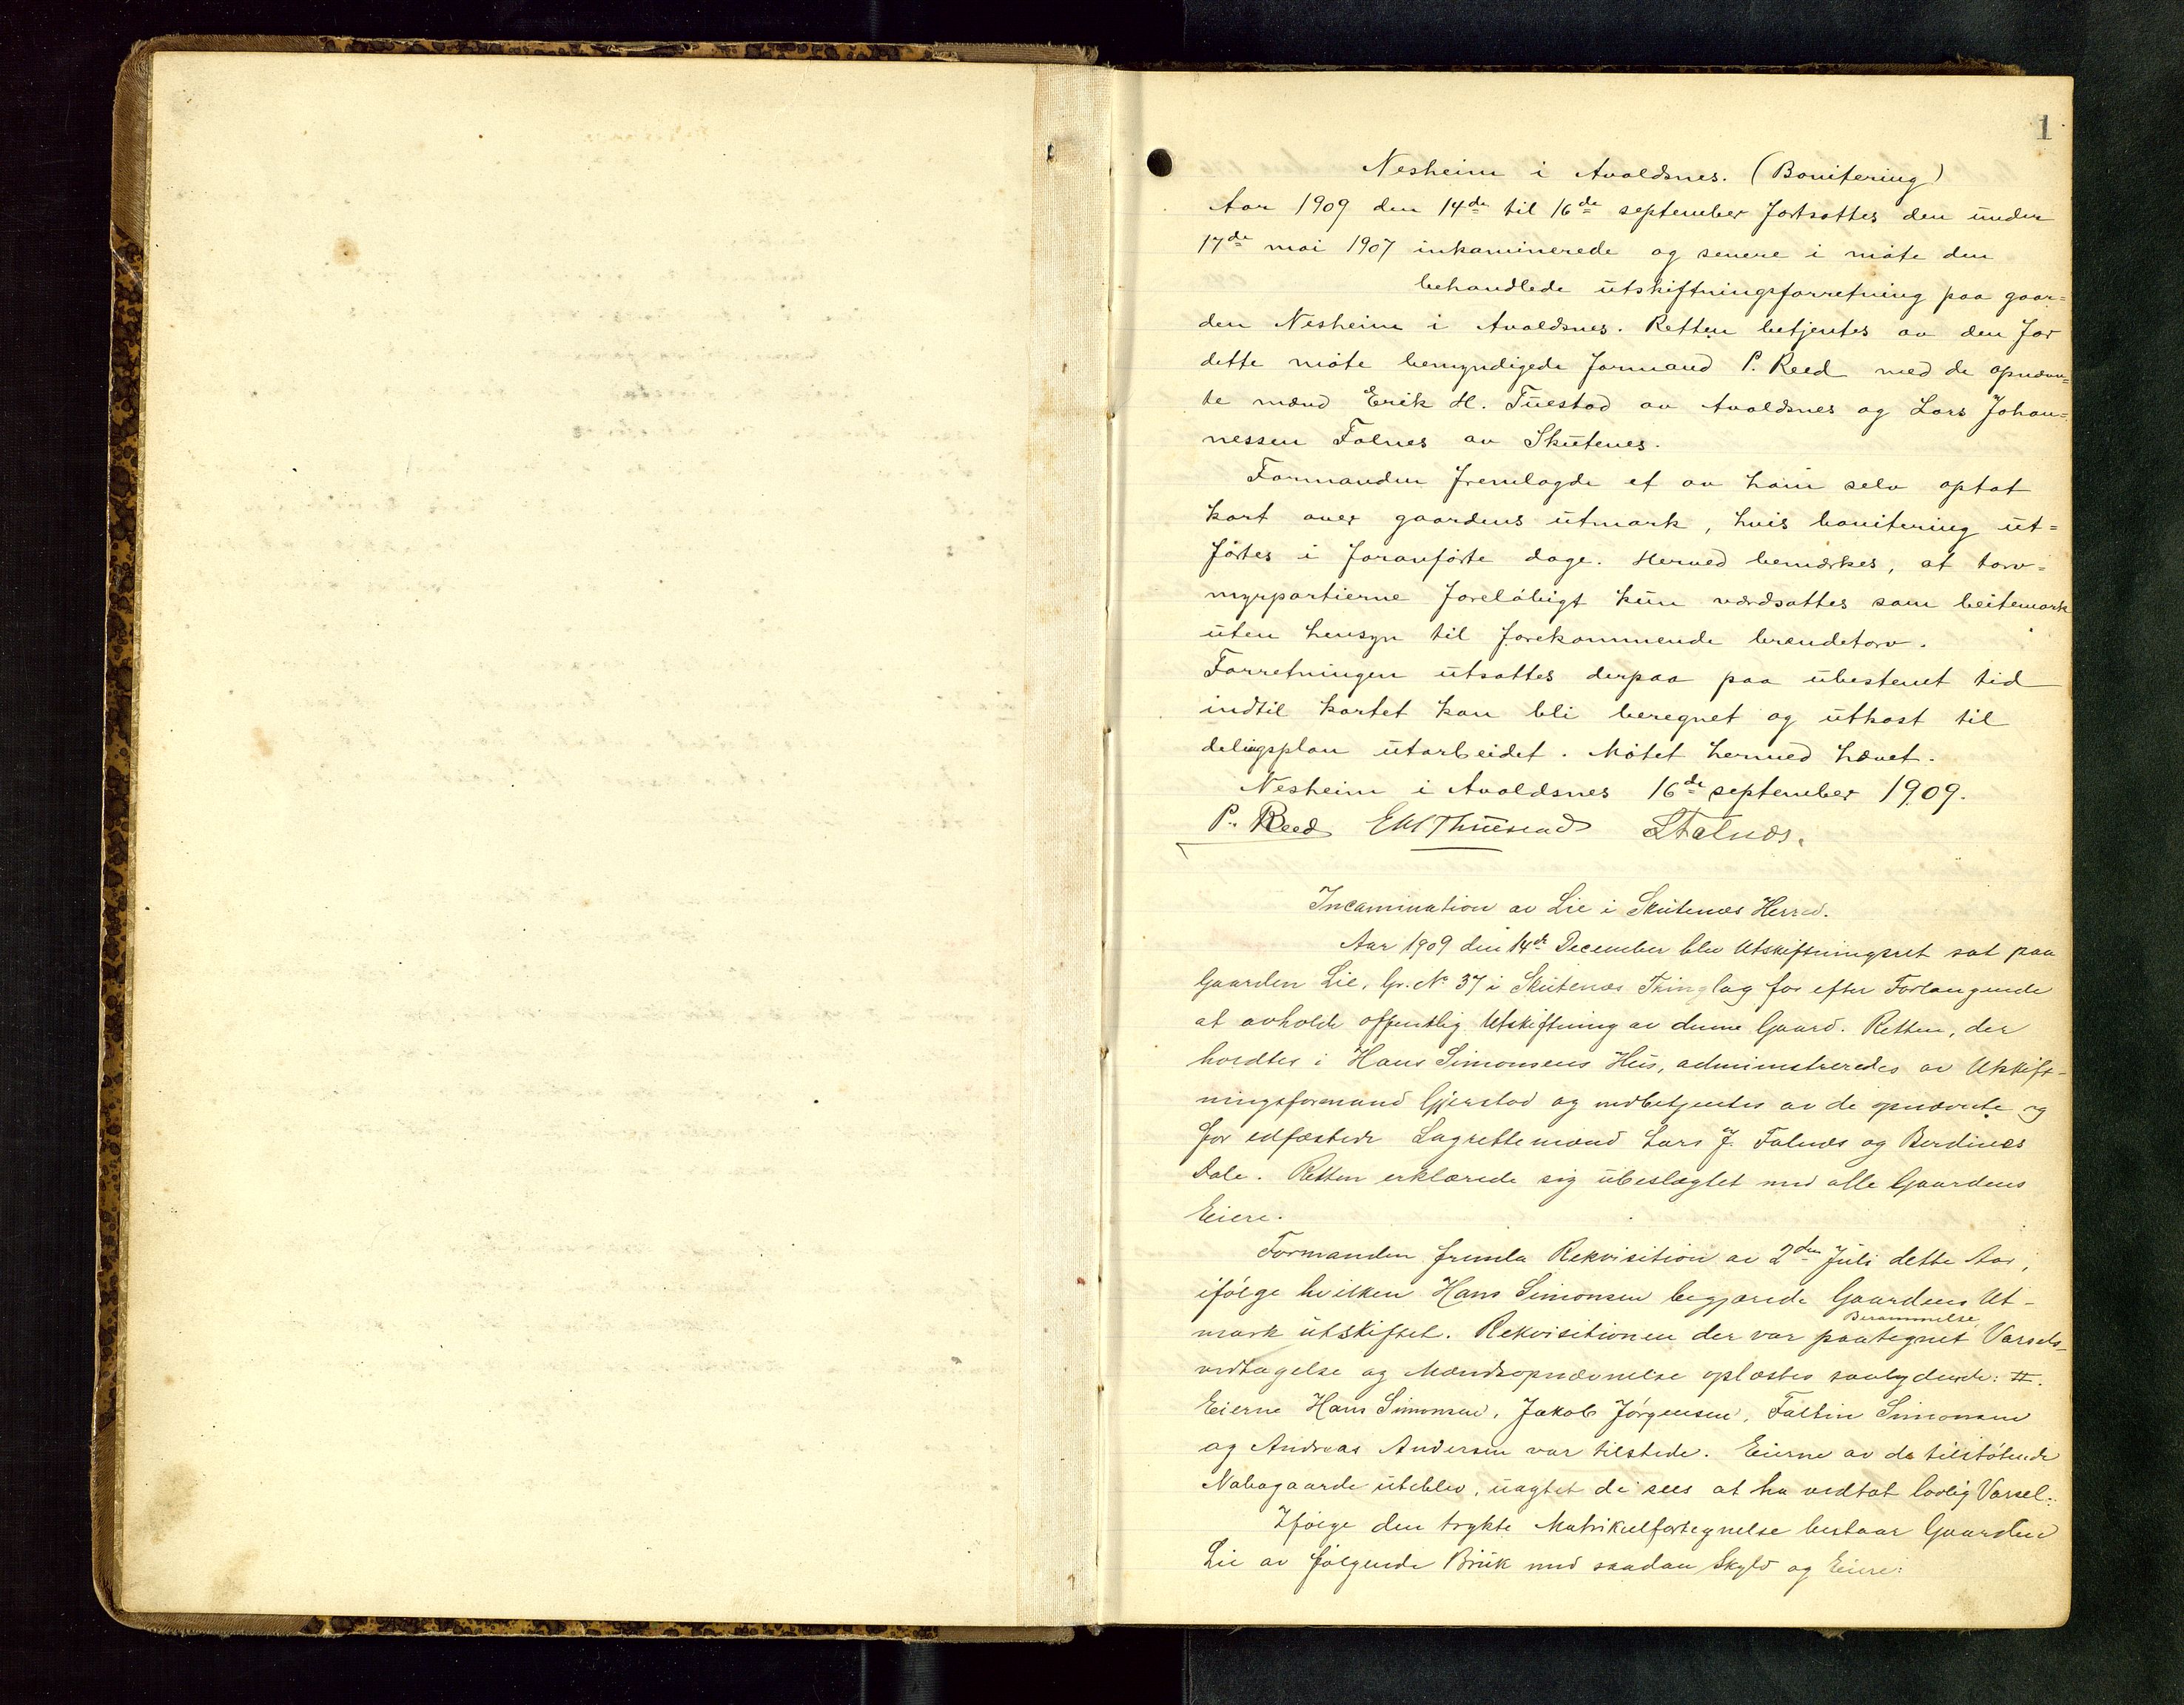 1
Nesheim i Avaldsnes. (Bonitering)
Aar 1909 den 14de til 16de september fortsattes den under
17de mai 1907 inkaminerede og senere i møte den
behandlede utskiftningsforretning paa gaar=
den Nesheim i Avaldsnes. Retten betjentes av den for
dette møte bemyndigede formand P. Reed med de opnævn=
te mænd Erik H. Tuestad av Avaldsnes og Lars Johan=
nessen Falnes av Skutenes.
Formanden fremlagde et av ham selv optat
kart over gaardens utmark, hvis bonitering ut=
førtes i foranførte dage. Herved bemærkes, at torv=
myrpartierne foreløbigt kun værdsattes som beitemark
uten hensyn til forekommende brændetorv.
Forretningen utsattes derpaa paa ubestemt tid
indtil kartet kan bli beregnet og utkast til
delingsplan utarbeidet. Møtet hermed hævet.
Nesheim i Avaldsnes 16de september 1909.
P. Reed EHThuestad LFalnæs.
Incamination av Lie i Skutenæs Herred.
Aar 1909 den 14de December blev Utskiftningsret sat paa
Gaarden Lie, Gr. No 37 i Skutenæs Thinglag for efter Forlangende
at avholde offentlig Utskiftning av denne Gaard. Retten, der
holdtes i Hans Simonsens Hus, administreredes av Utskift-
ningsformand Gjerstad og medbetjentes av de opnævnte og
før edfæstede Lagrettemænd Lars J. Falnæs og Berdines
Dale. Retten erklærede sig ubeslægtet med alle Gaardens
Eiere.
Formanden fremla Rekvisition av 2den Juli dette Aar,
ifølge hvilken Hans Simonsen begjærede Gaardens Ut-
mark utskiftet. Rekvisitionen der var paategnet Berammelse, Varsels-
vedtagelse og Mændsopnævnelse oplæstes saalydende: #.
Eierne Hans Simonsen, Jakob Jørgensen, Faltin Simonsen
og Andreas Andersen var tilstede. Eierne av de tilstøtende
Nabogaarde uteblev, uagtet de sees at ha vedtat lovlig Varsel.
Ifølge den trykte Matrikulfortegnelse bestaar Gaarden
Lie av følgende Bruk med saadan Skyld og Eiere: